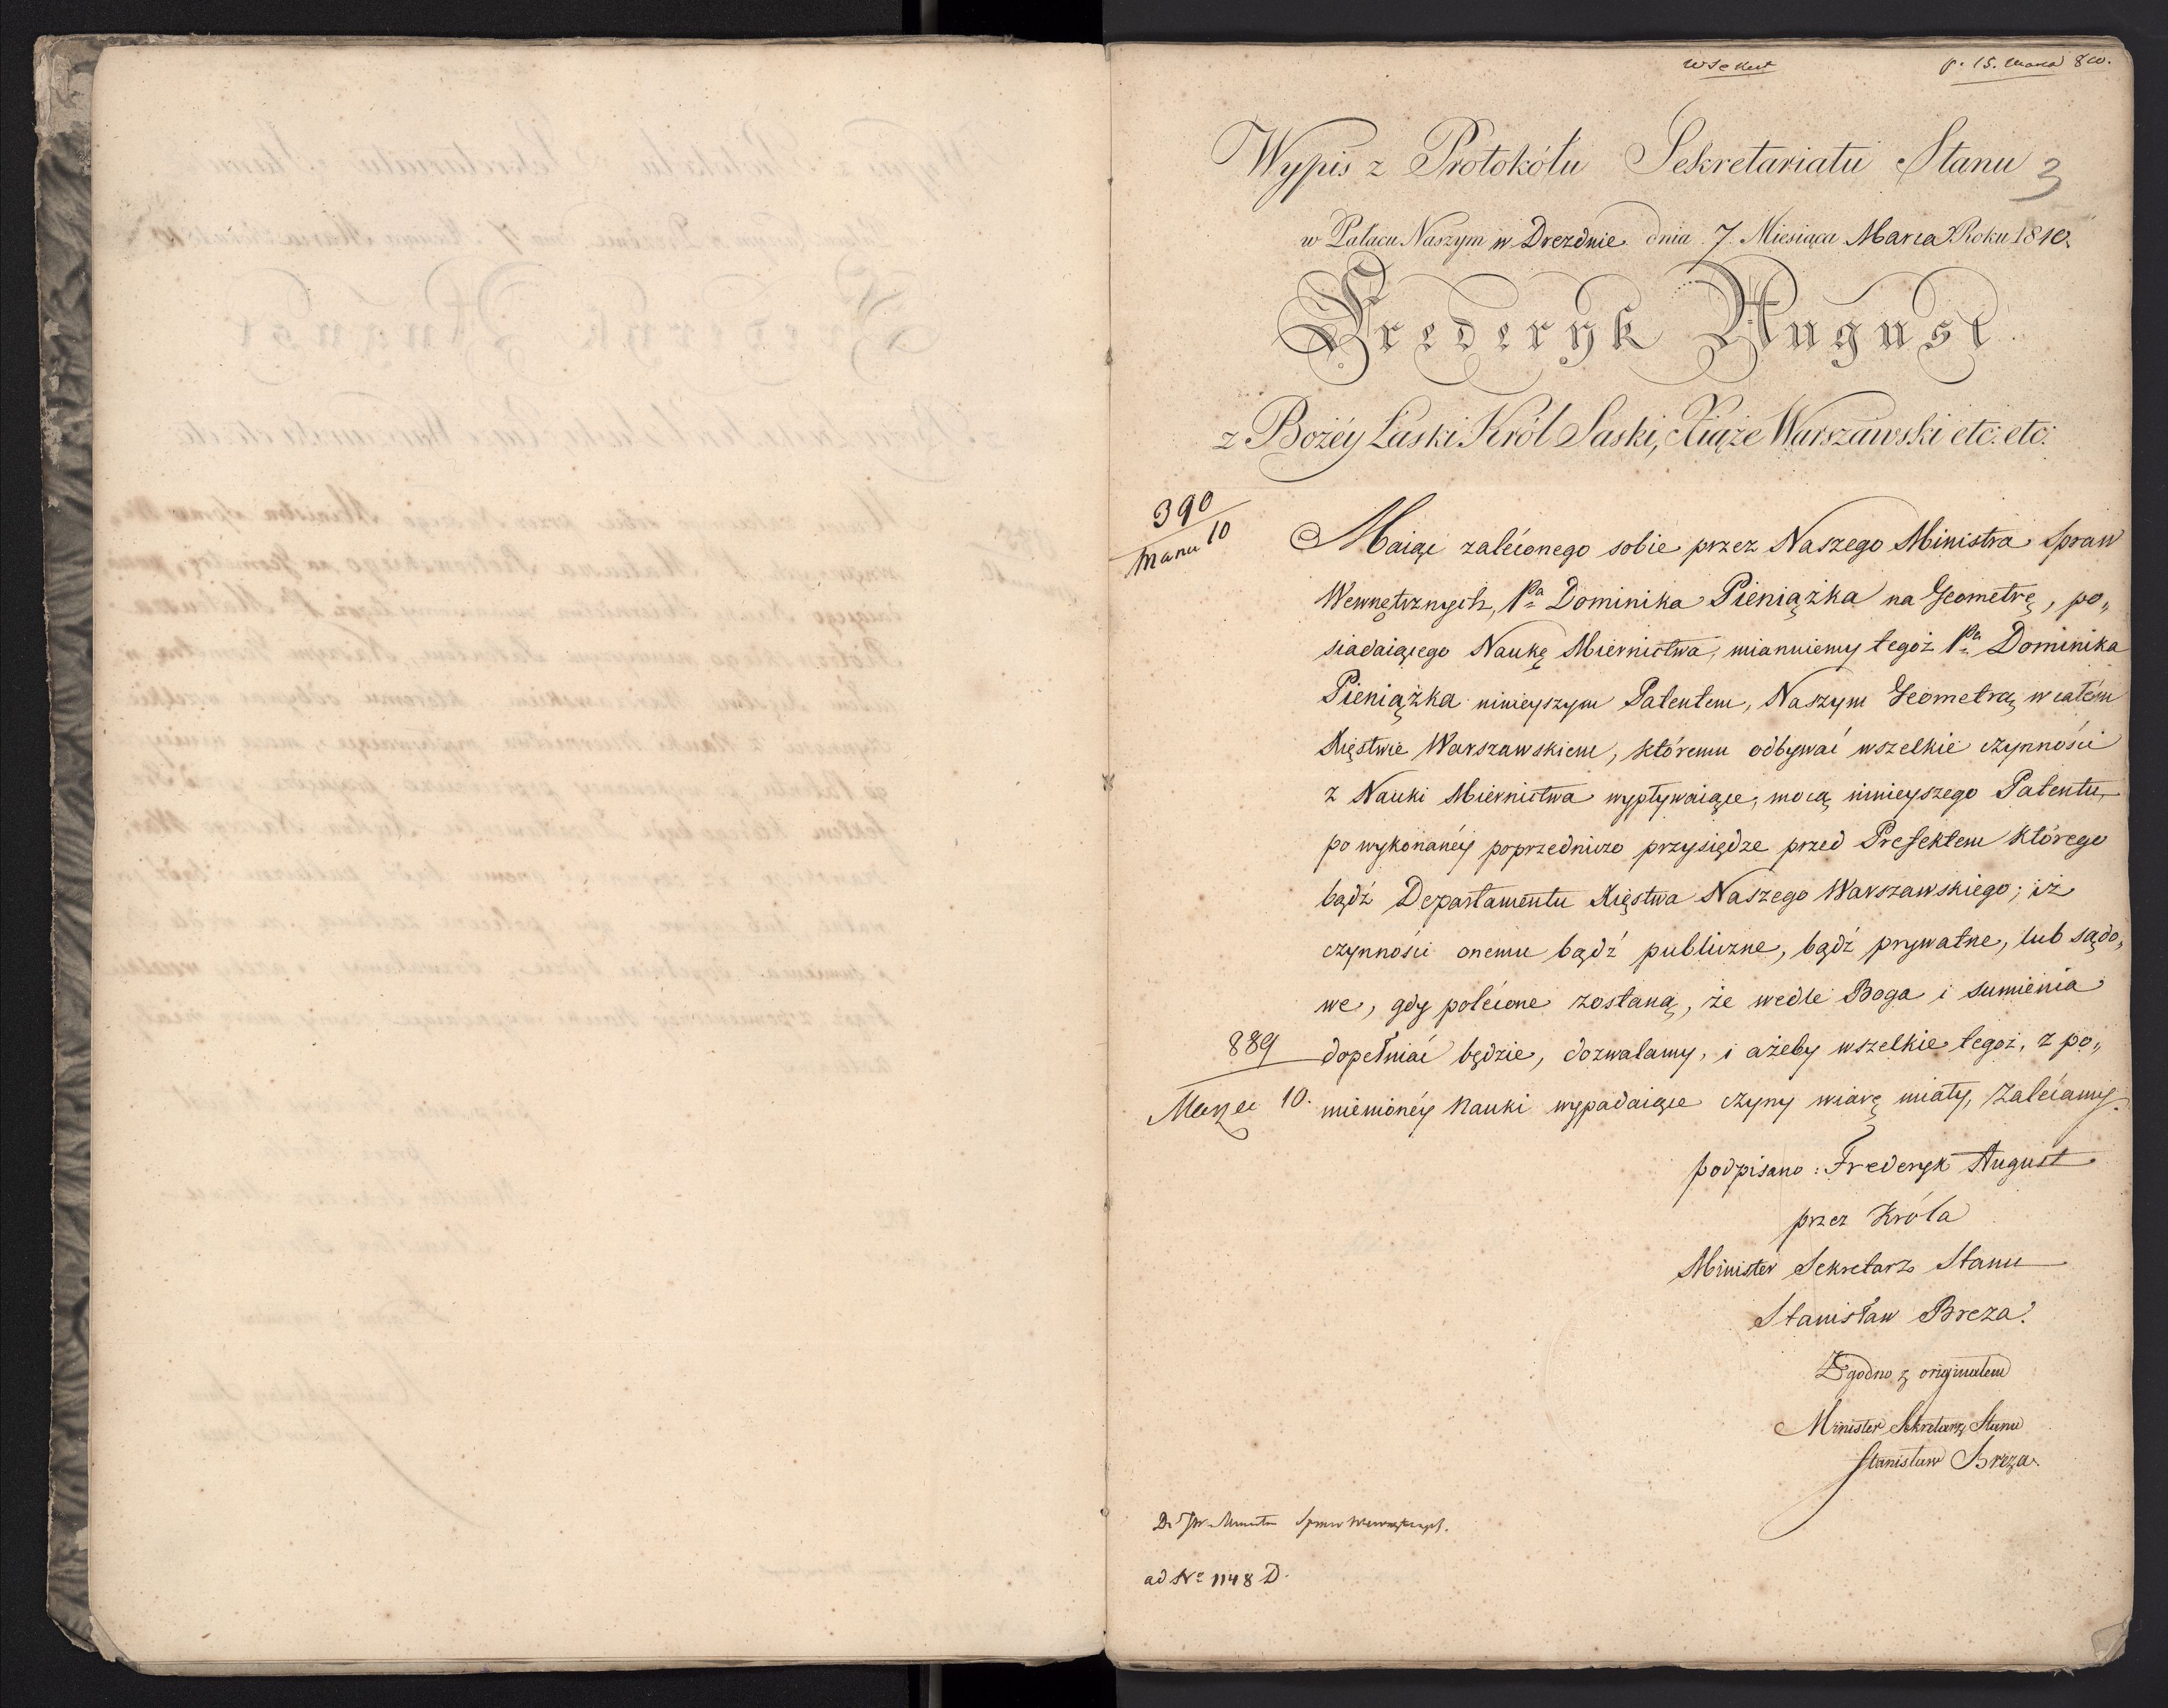 p. 15. Marca 810.
Wypis z Protokółu Sekretariatu Stanu
3
w Pałacu Naszym w Dreznie dnia 7. Miesiąca Marca Roku 1810.
Frederyk August
z Bożéy Łaski Król Saski, Xiąże Warszawski etc: etc:
390
10
Maiąc zalécone­go sobie przez Naszego Ministra Spraw
Wewnętrznych, Pa Dominika Pieniążka na Geometrę, po„
siadaiącego Naukę Miernictwa, mianuiemy tegoż Pa Dominika
Pieniążka ninieyszym Patentem, Naszym Geometrą w całém
Xięstwie Warszawskiem, któremu odbywać wszelkie czynności
z Nauki Miernictwa wypływaiące, mocą ninieyszego Patentu,
po wykonanéy poprzedniczo przysiędze przed Prefektem którego
bądź Departamentu Xięstwa Naszego Warszawskiego; iż
czynności onemu bądź publiczne, bądź prywatne, lub sądo„
we, gdy polécone zostaną, że wedle Boga i sumienia
889
dopełniać będzie, dozwalamy, i ażeby wszelkie tegoż, z po„
Marzec 10.
mienionéy Nauki wypadaiące czyny wiarę miały, Zalécamy.
podpisano: Frederyk August
przez Króla
Minister Sekretarz Stanu
Stanisław Breza.
Zgodno z originałem
Minister Sekretarz Stanu
Stanisław Breza.
Do JW. Ministra Spraw Wewnętrznych.
ad No 1148 D.